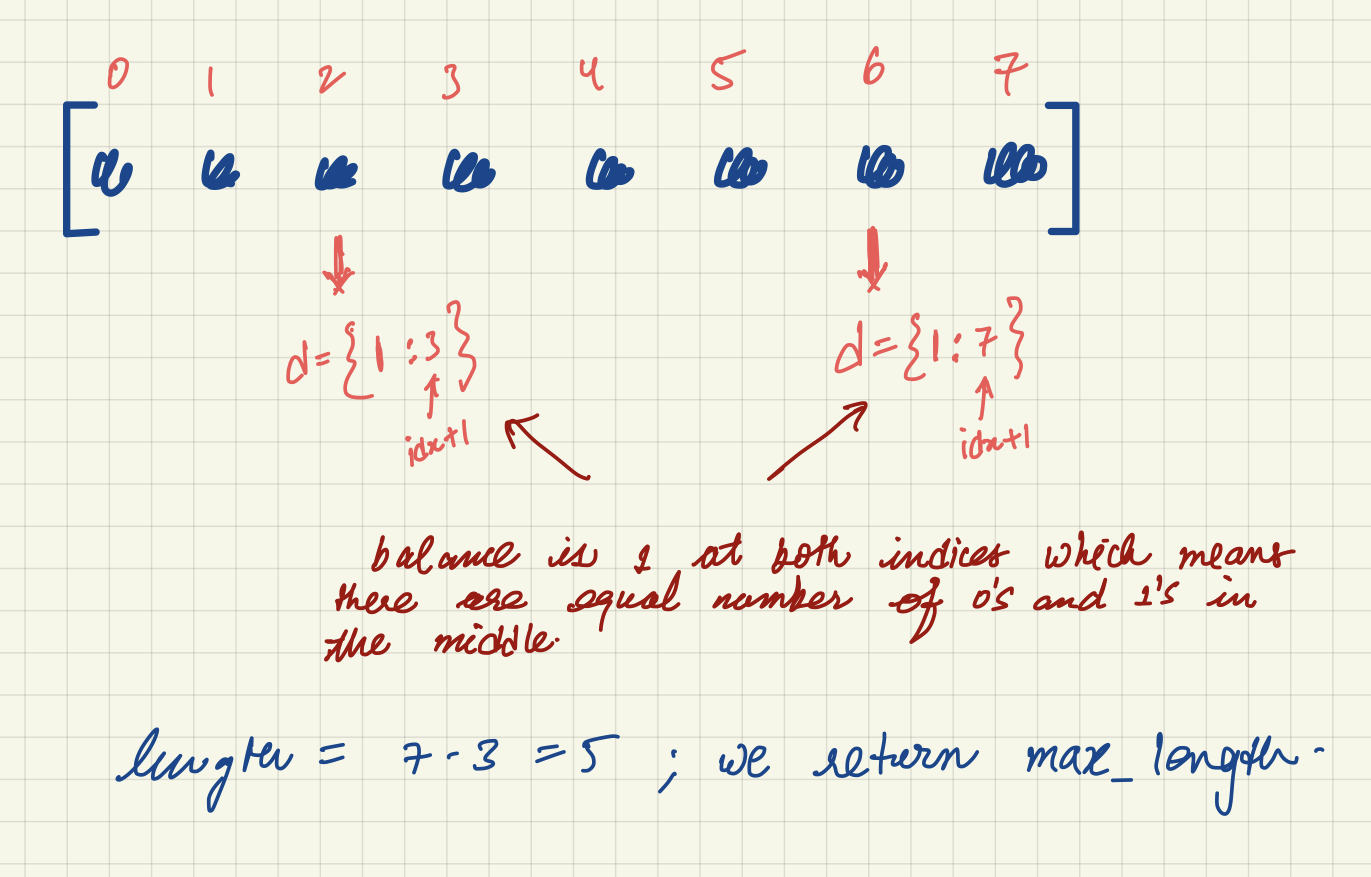 0 1 2 3 4 5 6 7
[ ]
d={1:3} d={1:7}
idx+1 idx+1
balance is 1 at both indices which means
there are equal number of 0's and 1's in
the middle.
length = 7-3 =5 ; we return max_length.